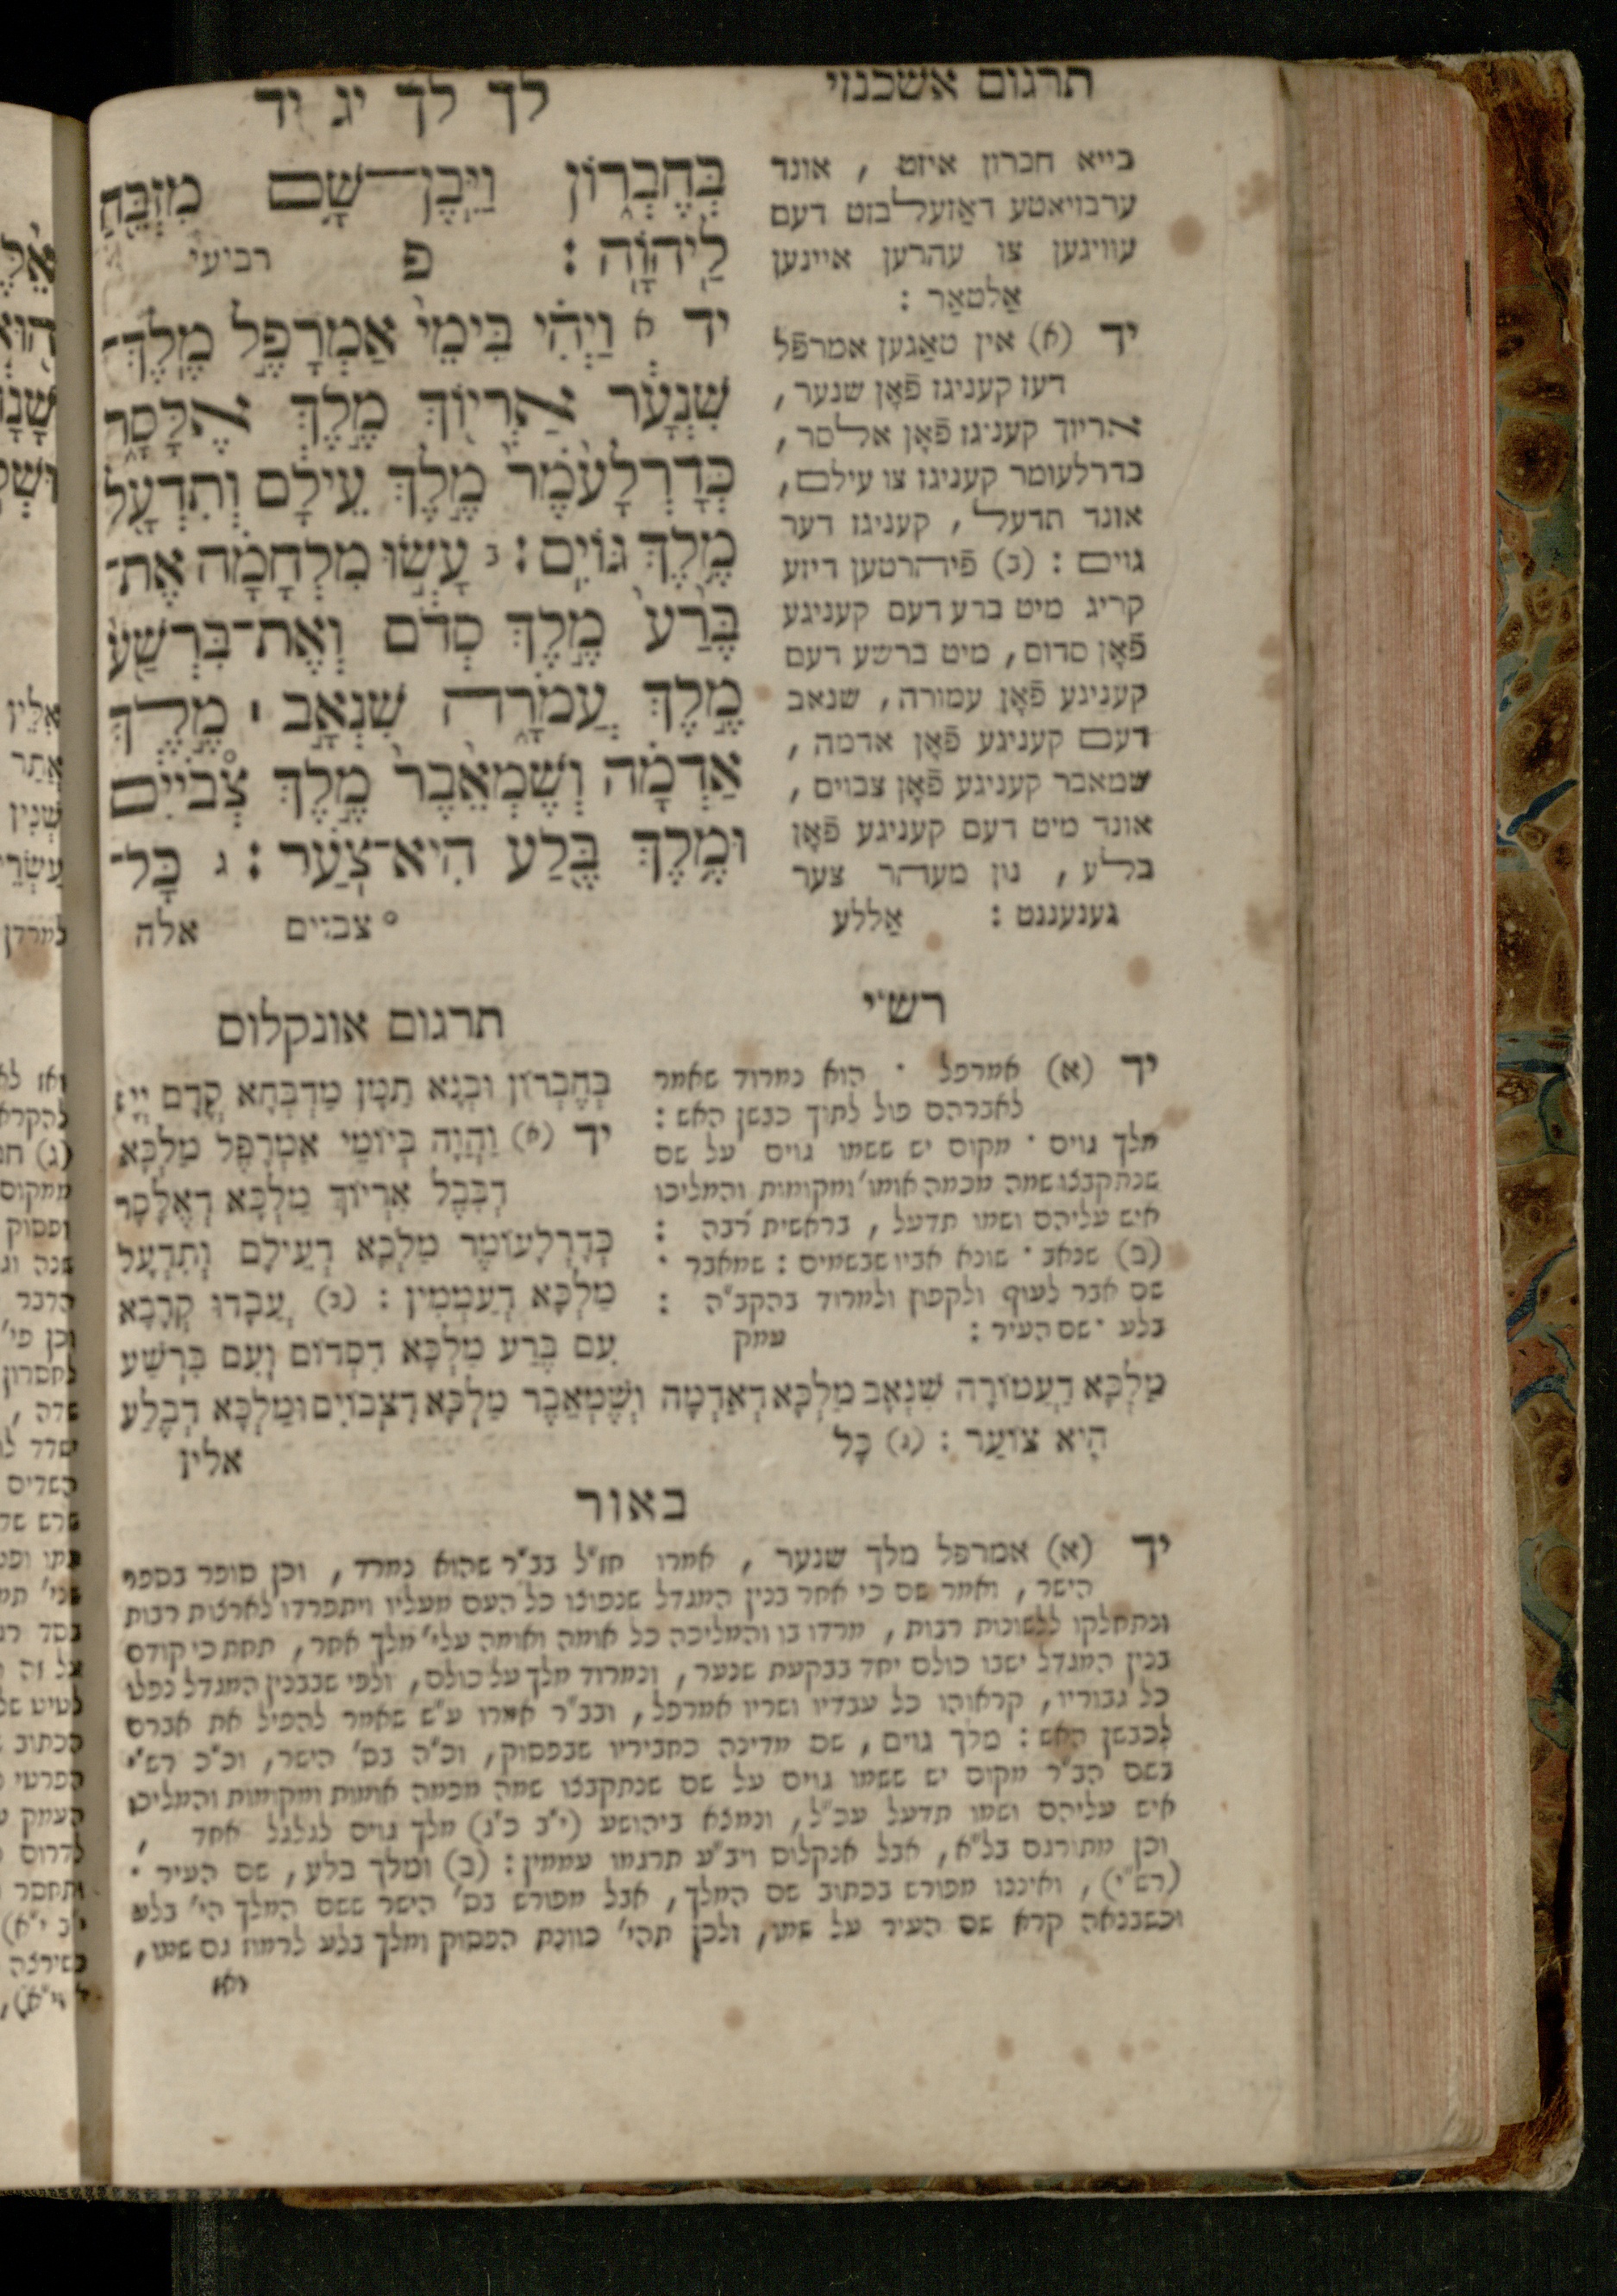 תרגום אשכנזי
לך לך יג יד
בייא חברון איזט , אונד
ערבויאטע דאַזעלבזט דעם
עוויגען צו עהרען איינען
אַלטאַר :
יד (א) אין טאַגען אמרפֿל
דעז קעניגז פֿאָן שנער ,
אריוך קעניגז פֿאָן אלסר ,
כדרלעומר קעניגז צו עילם ,
אונד תדעל , קעניגז דער
גוים : (ב) פֿיהרטען דיזע
קריג מיט ברע דעם קעניגע
פֿאָן סדום , מיט ברשע דעם
קעניגע פֿאָן עמורה , שנאב
דעם קעניגע פֿאָן אדמה ,
שמאבר קעניגע פֿאָן צבוים ,
אונד מיט דעם קעניגע פֿאָן
בלע , נון מעהר צער
גענעננט : אַללע
בְּחֶבְר֑וֹן וַיִּֽבֶן־שָׁ֥ם מִזְבֵּ֖חַ
לַֽיהוָֹֽה : פ רביעי
יד א וַיְהִ֗י בִּימֵי֙ אַמְרָפֶ֣ל מֶֽלֶךְ־
שִׁנְעָ֔ר אַרְי֖וֹךְ מֶ֣לֶךְ אֶלָּסָ֑ר
כְּדָרְלָעֹ֙מֶר֙ מֶ֣לֶךְ עֵילָ֔ם וְתִדְעָ֖ל
מֶ֥לֶךְ גּוֹיִֽם : ב עָשׂ֣וּ מִלְחָמָ֗ה אֶת־
בֶּ֙רַע֙ מֶ֣לֶךְ סְדֹ֔ם וְאֶת־בִּרְשַׁ֖ע
מֶ֣לֶךְ עֲמֹרָ֑ה שִׁנְאָ֣ב ׀ מֶ֣לֶךְ
אַדְמָ֗ה וְשֶׁמְאֵ֙בֶר֙ מֶ֣לֶךְ צְבֹיִ֔ים
וּמֶ֥לֶךְ בֶּ֖לַע הִיא־צֹֽעַר : ג כָּל־
° צבוים אלה
רש״י
יד (א) אמרפל · הוא נמרוד שאמר
לאברהם פול לתוך כבשן האש :
מלך גוים · מקום יש ששמו גוים על שם
שנתקבצו שמה מכמה אומו׳ ומקומות והמליכו
איש עליהם ושמו תדעל , בראשית רבה :
(ב) שנאב · שונא אביו שבשמים : שמאבר ·
שם אבר לעוף ולקפוץ ולמרוד בהקב״ה :
בלע · שם העיר : עמק
תרגום אונקלוס
בְּחֶבְרוֹן וּבְנָא תַמָן מַדְבְּחָא קֳדָם יְיָ :
יד (א) וַהֲוָה בְּיוֹמֵי אַמְרָפֶל מַלְכָּא
דְבָבֶל אַרְיוֹךְ מַלְכָּא דְאֶלָסָר
כְּדָרְלָעוֹמֶר מַלְכָּא דְעֵילָם וְתִדְעָל
מַלְכָּא דְעַמְמִין : (ב) עֲבָדוּ קְרָבָא
עִם בֶּרַע מַלְכָּא דִסְדוֹם וְעִם בִּרְשַׁע
מַלְכָּא דַעֲמוֹרָה שִׁנְאָב מַלְכָּא דְאַדְמָה וְשֶׁמְאֵבֶר מַלְכָּא דִצְבוֹיִם וּמַלְכָּא דְבֶלַע
הִיא צוֹעַר : (ג) כָּל
אלין
באור
יד (א) אמרפל מלך שנער , אמרו חז״ל בב״ר שהוא נמרד , וכן סופר בספר
הישר , ואמר שם כי אחר בנין המגדל שנפוצו כל העם מעליו ויתפרדו לארצות רבות
ונתחלקו ללשונות רבות , מרדו בו והמליכה כל אומה ואומה עלי׳ מלך אחר , תחת כי קודם
בנין המגדל ישבו כולם יחד בבקעת שנער , ונמרוד מלך על כולם , ולפי שבבנין המגדל נפלו
כל גבוריו , קראוהו כל עבדיו ושריו אמרפל , ובב״ר אמרו ע״ש שאמר להפיל את אברם
לכבשן האש : מלך גוים , שם מדינה כחביריו שבפסוק , וכ״ה בס׳ הישר , וכ״כ רש״י
בשם הב״ר מקום יש ששמו גוים על שם שנתקבצו שמה מכמה אומות ומקומות והמליכו
איש עליהם ושמו תדעל עכ״ל , ונמצא ביהושע (י״ב כ״ג) מלך גוים לגלגל אחד ,
וכן מתורגם בל״א , אבל אנקלוס ויב״ע תרגמו עממין : (ב) ומלך בלע , שם העיר ·
(רש״י) , ואיננו מפורש בכתוב שם המלך , אבל מפורש בס׳ הישר ששם המלך הי׳ בלע
וכשבנאה קרא שם העיר על שמו , ולכן תהי׳ כוונת הפסוק ומלך בלע לרמוז גם שמו ,
ואו